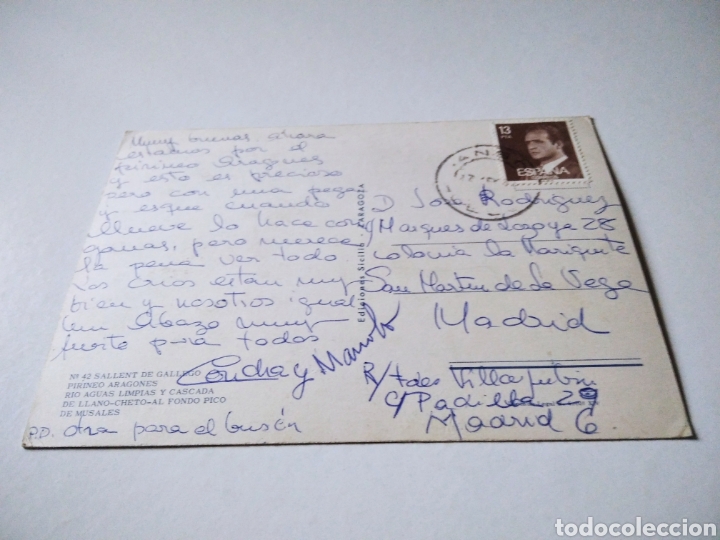 Muy buenas ahora
estamos por el
pirineo Aragones
y esto es precioso
pero con una pega
y esque cuando
llueve lo hace con
ganas, pero merece
la pena ver todo
los crios estan muy
bien y nosotros igual
un Abazo muy
fuerte para todos
Concha y Manolo
Nº 42 SALLENT DE GALLEGO
PIRINEO ARAGONES
RIO AGUAS LIMPIAS Y CASCADA
DE LLANO-CHETO-AL FONDO PICO
DE MUSALES
P.D. otra para el busón
Ediciones Sicilia - ZARAGOZA
13
PTA
ESPAÑA
D. Jose Rodriguez
Marques de 28
Colonia la
San Martin de la Vega
Madrid
R/tdes
C/ Padilla 29
Madrid 6
todocoleccion